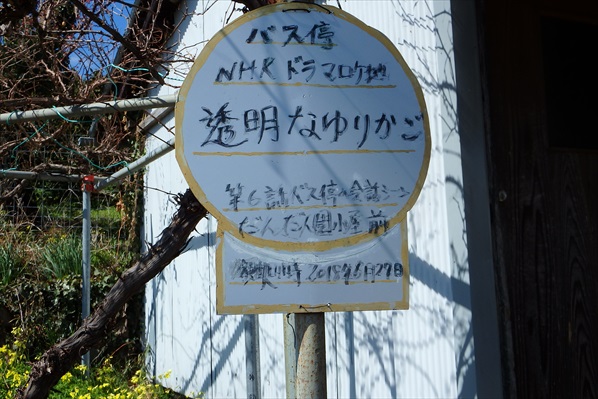 バス停
NHKドラマロケ地
透明なゆりかご
第6話バス停の会話シーン
だんだん園小屋前
撮影日時 2018年6月27日